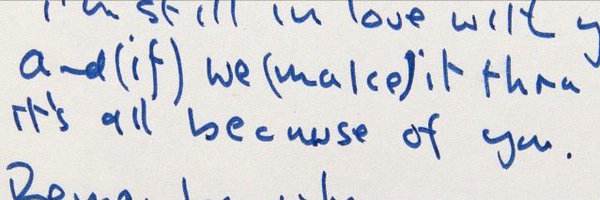 I'm still in love with y
and (if) we (make) it thru
it's all because of you.
Remember why